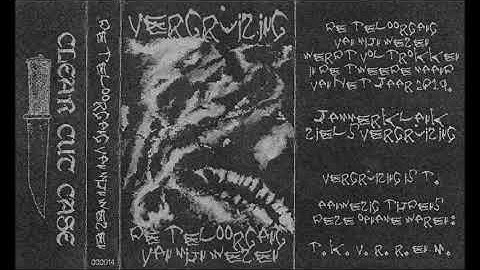 CLEAR CUT CASE
DE TELOORGANG VAN MIJN WEZEN
VERGRUIZING
DE TELOORGANG
VAN MIJN WEZEN
DE TELOORGANG
VAN MIJN WEZEN
WERD VOLTROKKEN
IN DE TWEEDE MAAND
VAN HET JAAR 2019.
JAMMERKLANK
ZIELSVERGRUIZING
VERGRUIZING IS T.
AANWEZIG TIJDENS
DEZE OPNAME WAREN:
T. K. V. R. R. EN M.